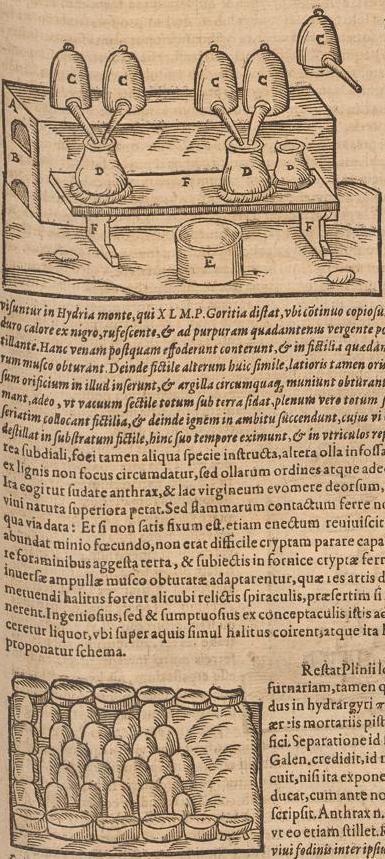 C
C C C C
A
B
D D D
F
F F
E
visuntur in Hydria monte, qui X L M.P. Goritia distat, vbi cōtinuo copiosu
duro calore ex nigro, rufescente, & ad purpuram quadamtenus vergente
tillante. Hanc venam postquam effoderunt conterunt, & in fictilia quædam
rum musco obturant. Deinde fictile alterum huic simile, latioris tamen ori
sum orificium in illud inserunt, & argilla circumquaq; muniunt obturant
mant, adeo, vt vacuum fectile totum sub terra sidat, plenum vero totum
seriatim collocant fictilia, & deinde ignem in ambitu succendunt, cujus vi
destillat in substratum fictile, hinc suo tempore eximunt, & in vtriculos
rea subdiali, foci tamen aliqua specie instructa, altera olla infossa
ex lignis non focus circumdatur, sed ollarum ordines atque adeo
Ita cogitur sudare anthrax, & lac virgineum evomere deorsum,
vini natura superiora petat. Sed flammarum contactum ferre no
qua via data: Et si non satis fixum est, etiam enectum reuiuiscit
abundat minio fœcundo, non erat difficile cryptam parare capa
te foraminibus aggesta terra, & subiectis in fornice cryptæ
inuersæ ampullæ musco obturatæ adaptarentur, quæ res artis
metuendi halitus forent alicubi relictis spiraculis, præsertim si
nerent. Ingeniosius, sed & sumptuosius ex conceptaculis istis
ceretur liquor, vbi super aquis simul halitus coirent, atque ita
proponatur schema.
Restat Plinii
furnariam, tamen
dus in hydrargyri
mortariis
fici. Separatione id
Galen. credidit, id
cuit, nisi ita expone
ducat, cum ante no
scripsit. Anthrax n.
vt eo etiam stillet.
viui fodinis inter